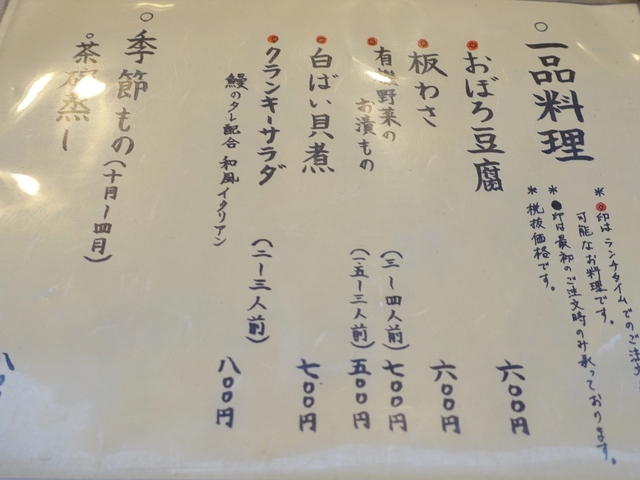 ○一品料理
＊◉印はランチタイムでのご注文
可能なお料理です。
＊●印は最初のご注文時のみ承っております。
＊税抜価格です。
◉おぼろ豆腐 六〇〇円
◉板わさ 六〇〇円
◉有機野菜のお漬もの（三〜四人前）七〇〇円
（一.五〜二人前）五〇〇円
◉白ばい貝煮 七〇〇円
◉クランキーサラダ（二〜三人前）八〇〇円
鰻のタレ配合 和風イタリアン
○季節もの（十月〜四月）
○茶碗蒸し